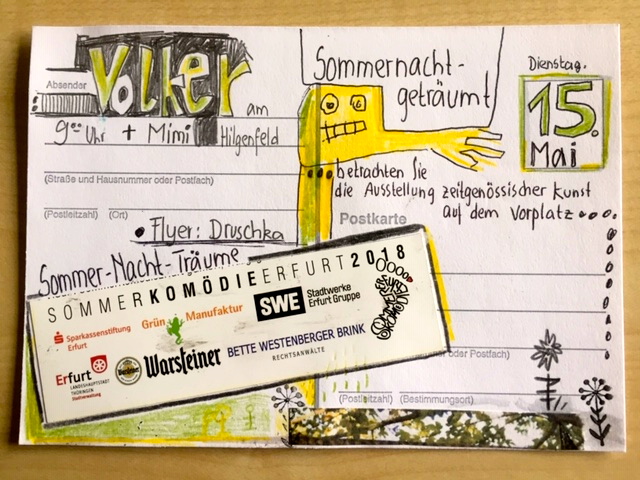 Absender
Volker
am
9°° Uhr + Mimi Hilgenfeld
(Straße und Hausnummer oder Postfach)
(Postleitzahl) (Ort)
• Flyer: Druschka
Sommer-Nacht-Träume
Sommernacht-
geträumt
Dienstag.
15.
Mai
... betrachten Sie
die Ausstellung zeitgenössischer Kunst
auf dem Vorplatz
Postkarte
SOMMERKOMÖDIEERFURT2018
Sparkassenstiftung
Erfurt
Grün Manufaktur
SWE Stadtwerke
Erfurt Gruppe
Erfurt
LANDESHAUPTSTADT
THÜRINGEN
Stadtverwaltung
Warsteiner
BETTE WESTENBERGER BRINK
RECHTSANWÄLTE
oder Postfach)
(Postleitzahl) (Bestimmungsort)